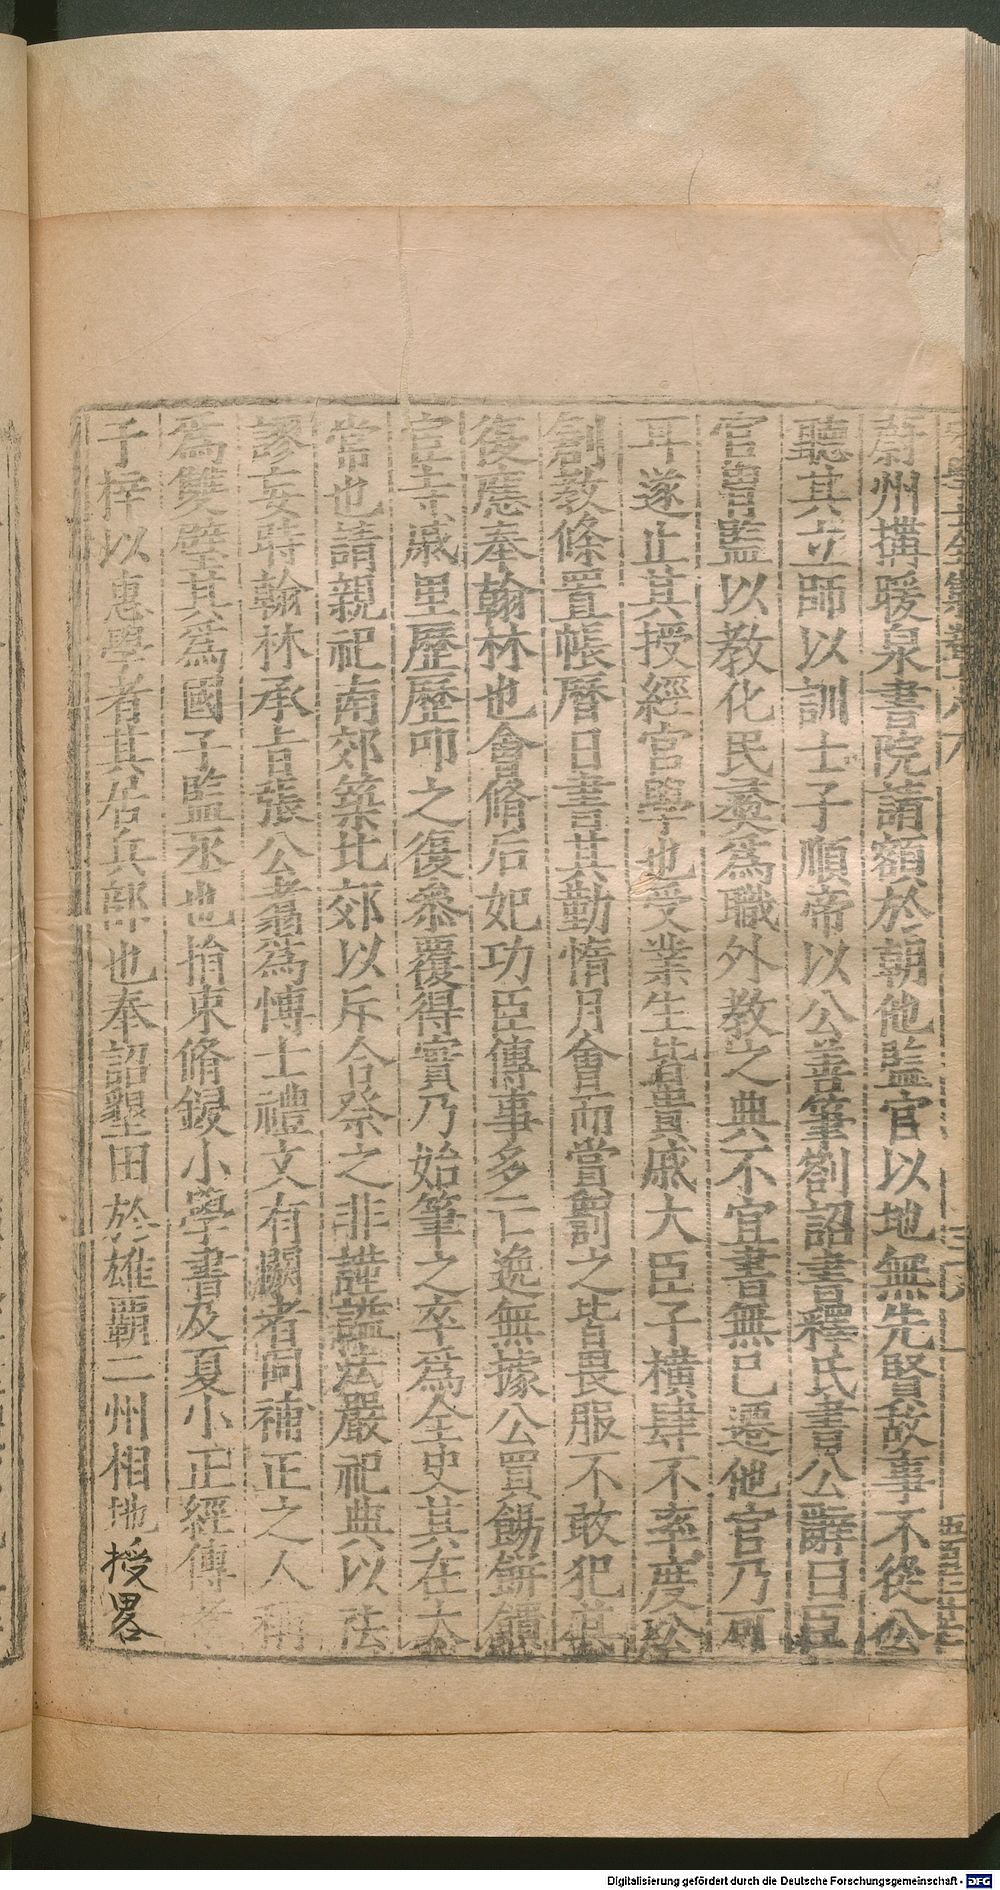 蔚州搆暖泉書院請額於朝他監官以地無先賢故事不從公
聽其立師以訓士子順帝以公善筆劄詔書釋氏書公辭曰臣
官胄監以教化民彞爲職外教之典不宜書無已遷他官乃可
耳遂止其授經官學也受業生皆貴戚大臣子橫肆不率度公
創教條置帳曆日書其勤惰月會而當罰之皆畏服不敢犯其
復應奉翰林也會脩后妃功臣傳事多亡逸無據公買餳餅饋
宦寺戚里歷歷叩之復叅覆得實乃始筆之卒爲全史其在太
常也請親祀南郊築北郊以斥合祭之非謹謚法嚴祀典以法
謬妄時翰林承旨張公翥爲愽士禮文有闕者同補正之人稱
爲雙璧其爲國子監丞也捐束脩鋟小學書及夏小正經傳考
于梓以惠學者其居兵部也奉詔墾田於雄覇二州相地授畧
五百三十七